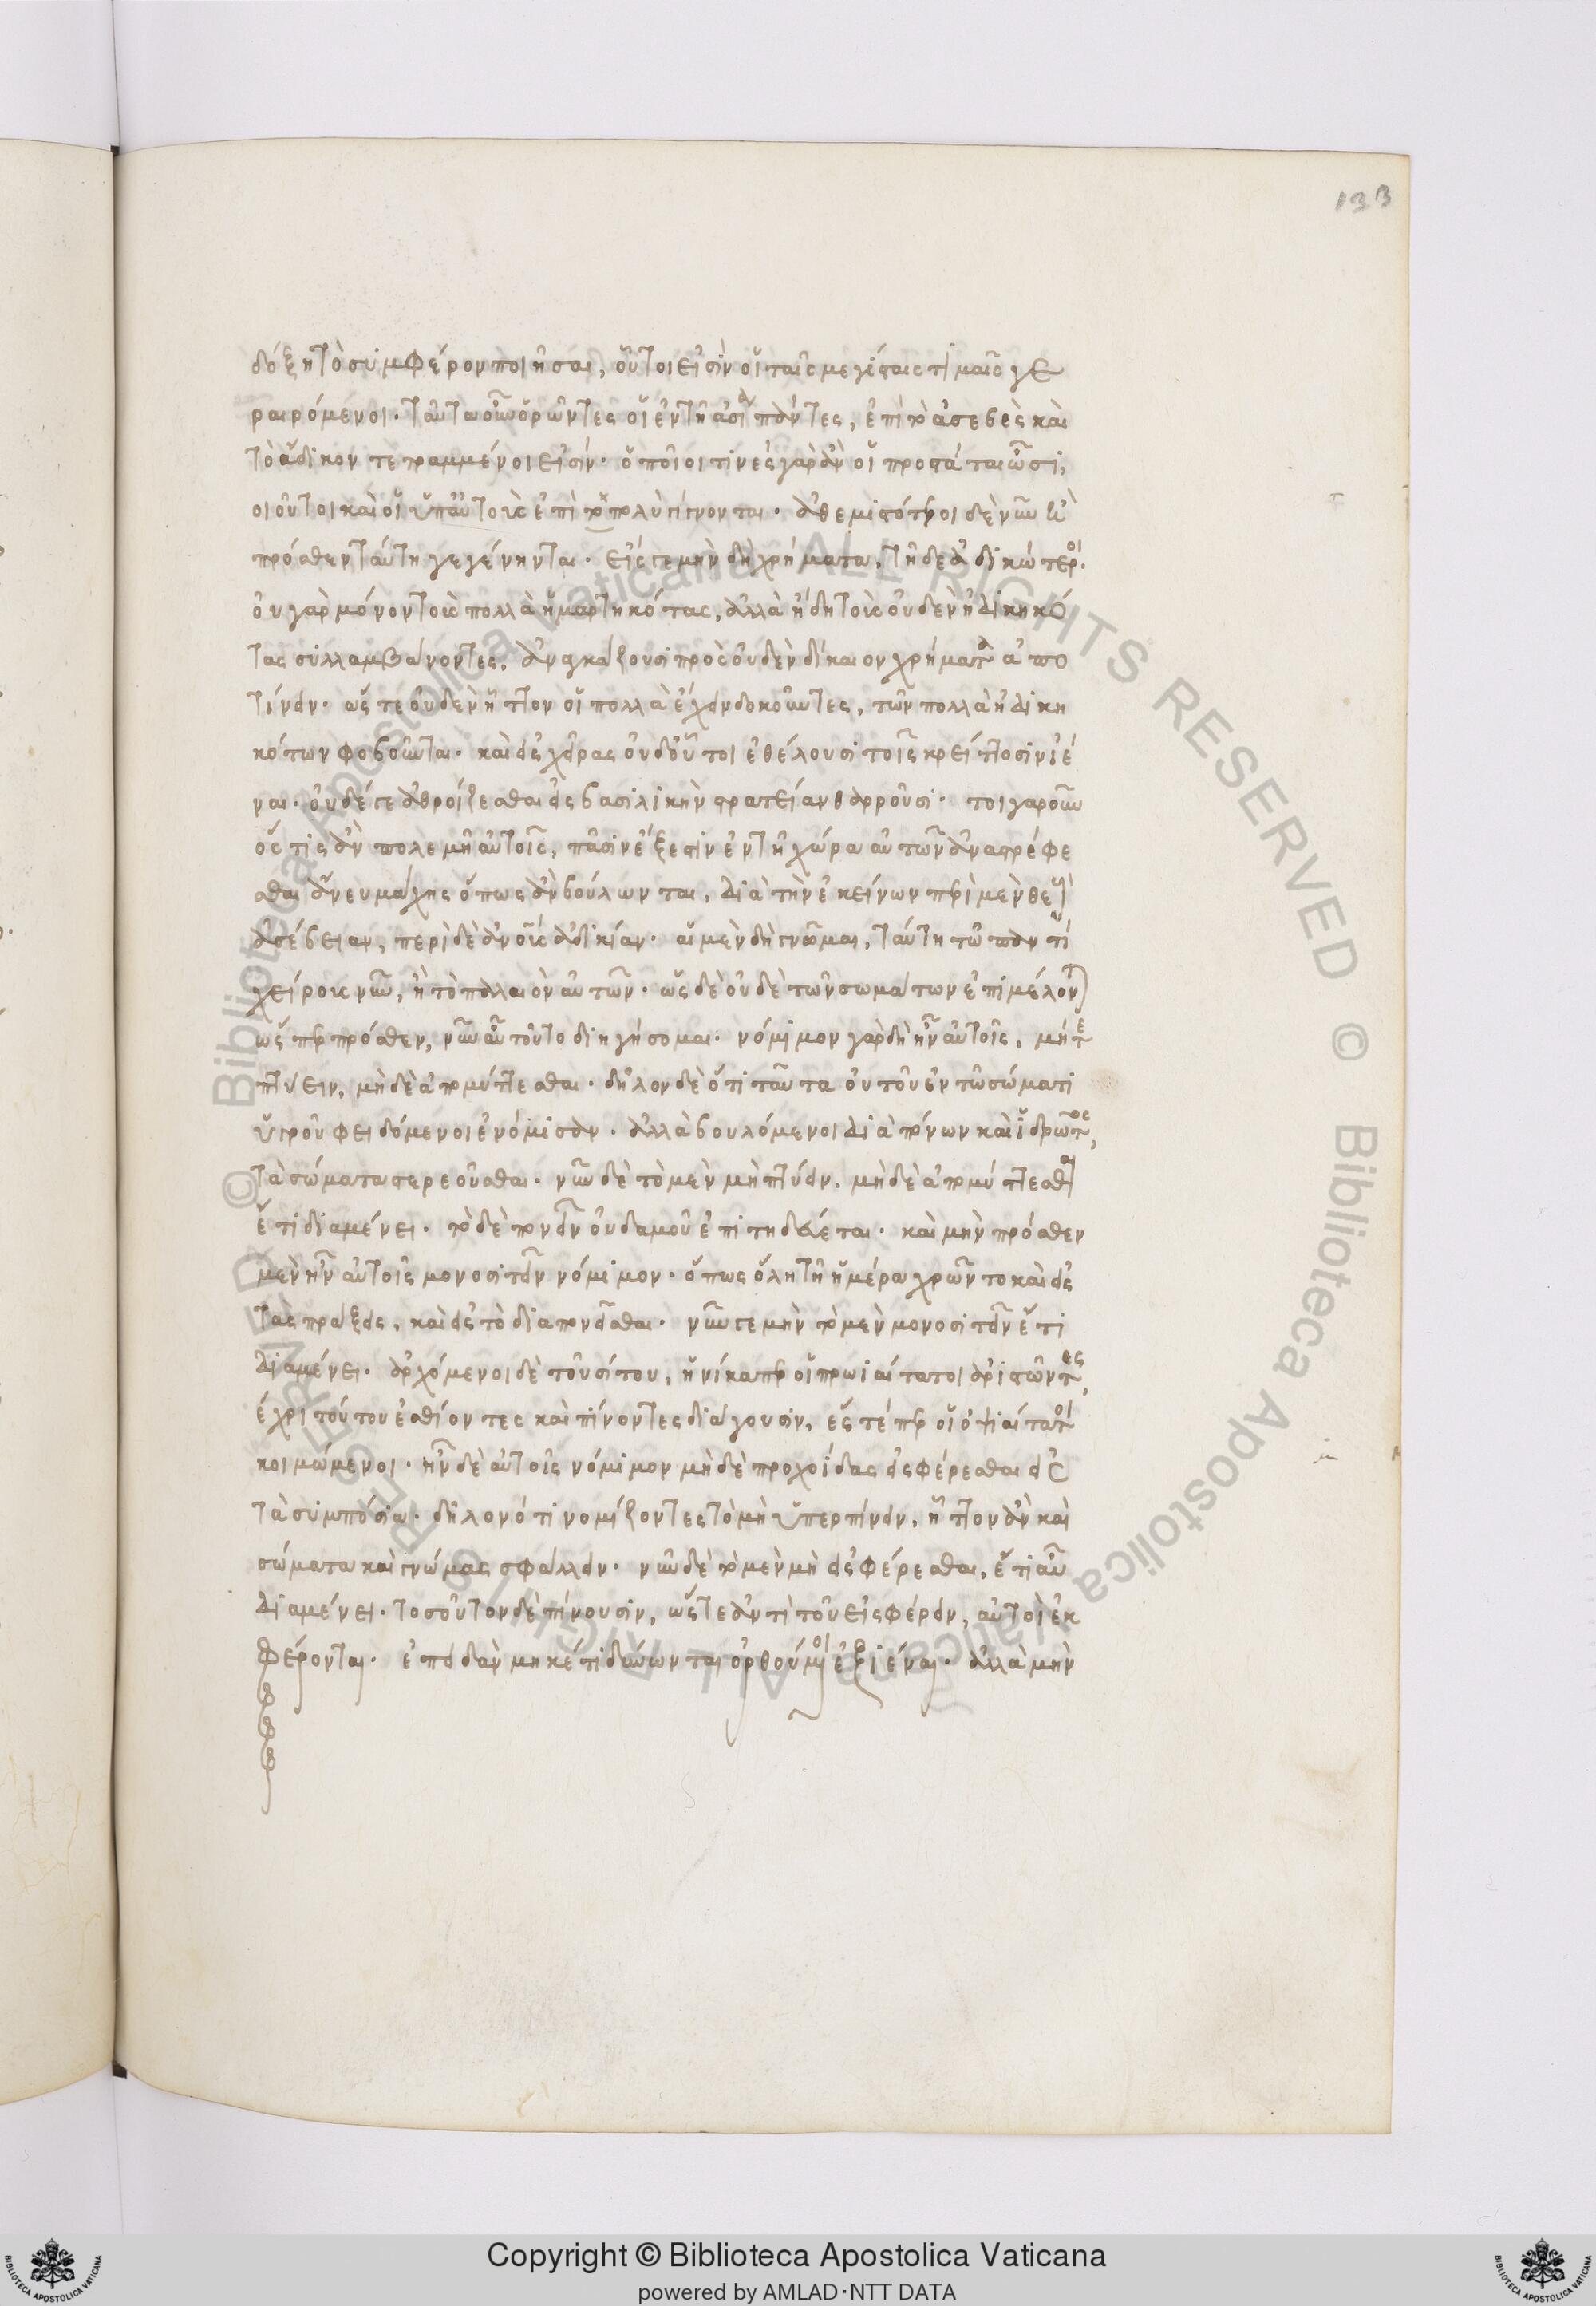 133
δόξη τὸ συμφέρον ποιῆσαι, οὗτοι εἰσὶν οἱ ταῖς μεγίσταις τιμαῖς γε
ραιρόμενοι. ταῦτα οὖν ὁρῶντες οἱ ἐν τῆ ἀσία πάντες, ἐπὶ τὸ ἀσεβὲς καὶ
τὸ ἄδικον τετραμμένοι εἰσίν. ὁποῖοι τινὲς γὰρ ἂν οἱ προστάται ὦσι,
οιοῦτοι καὶ οἱ ὑπ αὐτοὺς ἐπὶ τὸ πολὺ γίγνονται. ἀθεμιστότεροι δὲ νῦν ἢ
πρόσθεν ταύτη γεγένηνται. εἴς γε μὴν δὴ χρήματα, τῆδε ἀδικώτεροι.
οὐ γὰρ μόνον τοὺς πολλὰ ἡμαρτηκότας, ἀλλὰ ἤδη τοὺς οὐδὲν ἠδικηκό
τας συλλαμβάνοντες, ἀναγκάζουσι πρὸς οὐδὲν δίκαιον χρήματα ἀπο
τίνειν. ὥστε οὐδὲν ἧττον οἱ πολλὰ ἔχειν δοκοῦντες, τῶν πολλὰ ἠδικη
κότων φοβοῦνται. καὶ εἰς χεῖρας οὐδ οὗτοι ἐθέλουσι τοῖς κρείττοσιν ἰέ
ναι. οὐδέ γε ἀθροίζεσθαι εἰς βασιλικὴν στρατείαν θαρροῦσι. τοιγαροῦν
ὅς τις ἂν πολεμῆ αὐτοῖς, πᾶσιν ἔξεστιν ἐν τῆ χώρα αὐτῶν ἀναστρέφε
σθαι ἄνευ μάχης ὅπως ἂν βούλωνται, διὰ τὴν ἐκείνων περὶ μὲν θεοὺς
ἀσέβειαν, περὶ δὲ ἀνους ἀδικίαν. αἱ μὲν δὴ γνῶμαι, ταύτη τῶ παντὶ
χείρους νῦν, ἢ τὸ παλαιὸν αὐτῶν. ὡς δὲ οὐδὲ τῶν σωμάτων ἐπιμέλονται
ὥσπερ πρόσθεν, νῦν αὖ τοῦτο διηγήσομαι. νόμιμον γὰρ δὴ ἦν αὐτοῖς, μήτε
πτύειν, μὴ δὲ ἀπομύττεσθαι. δῆλον δὲ ὅτι ταῦτα οὐ τοῦ ἐν τῶ σώματι
ὑγροῦ φειδόμενοι ἐνόμισαν. ἀλλὰ βουλόμενοι διὰ πόνων καὶ ἱδρῶτος,
τὰ σώματα στερεοῦσθαι. νῦν δὲ τὸ μὲν μὴ πτύειν, μὴ δὲ ἀπομύττεσθαι
ἔτι διαμένει. τὸ δὲ πονεῖν οὐδαμοῦ ἐπιτηδεύεται. καὶ μὴν πρόσθεν
μὲν ἦν αὐτοῖς μονοσιτεῖν νόμιμον. ὅπως ὅλη τῆ ἡμέρα χρῶντο καὶ εἰς
τὰς πράξεις, καὶ εἰς τὸ διαπονεῖσθαι. νῦν γε μὴν τὸ μὲν μονοσιτεῖν ἔτι
διαμένει. ἀρχόμενοι δὲ τοῦ σίτου, ἡνίκαπερ οἱ πρωιαίτατοι ἀριστῶντες,
έχρι τούτου ἐσθίοντες καὶ πίνοντες διάγουσιν, ἔς τέ περ οἱ ὀψιαίτατοι
κοιμώμενοι. ἦν δὲ αὐτοῖς νόμιμον μὴ δὲ προχοίδας εἰσφέρεσθαι εἰς
τὰ συμπόσια. δῆλον ὅτι νομίζοντες τὸ μὴ ὑπερπίνειν, ἧττον ἂν καὶ
σώματα καὶ γνώμας σφάλλειν. νῦν δὲ τὸ μὲν μὴ εἰσφέρεσθαι, ἔτι αὖ
διαμένει. τοσοῦτον δὲ πίνουσιν, ὥστε ἀντὶ τοῦ εἰσφέρειν, αὐτοὶ ἐκ
φέρονται. ἐπειδὰν μηκέτι δύνωνται ὀρθούμενοι ἐξιέναι. ἀλλὰ μὴν
© Biblioteca Apostolica Vaticana ALL RIGHTS RESERVED
Copyright © Biblioteca Apostolica Vaticana
powered by AMLAD·NTT DATA